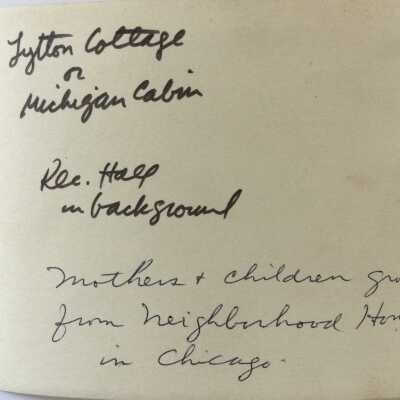 Lytton Cottage
or
Michigan Cabin
Rec. Hall
in background
Mothers + children gro
from Neighborhood Hou
in Chicago.